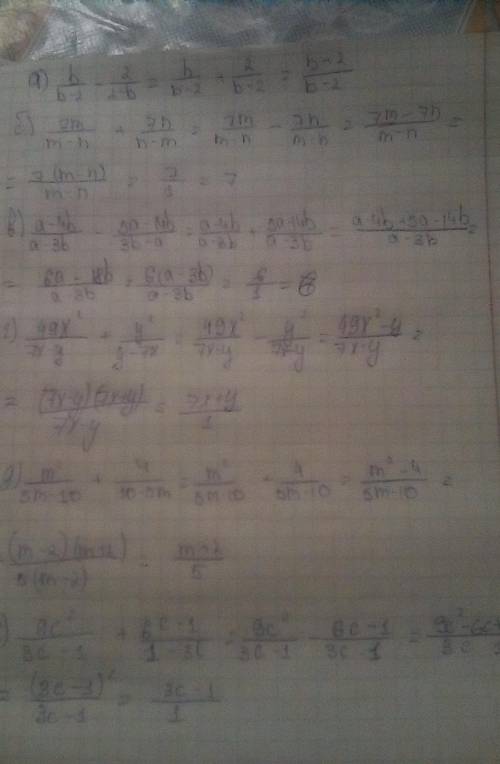 а) b/(b-2) - 2/(2-b) = b/(b-2) + 2/(b-2) = (b+2)/(b-2)
б) 7m/(m-n) + 7n/(n-m) = 7m/(m-n) - 7n/(m-n) = (7m-7n)/(m-n) =
= 7(m-n)/(m-n) = 7/1 = 7
в) (a-4b)/(a-3b) - (5a-14b)/(3b-a) = (a-4b)/(a-3b) + (5a-14b)/(a-3b) = (a-4b+5a-14b)/(a-3b) =
= (6a-18b)/(a-3b) = 6(a-3b)/(a-3b) = 6/1 = 6
г) 49x²/(7x-y) + y²/(y-7x) = 49x²/(7x-y) - y²/(7x-y) = (49x²-y)/(7x-y) =
= (7x-y)(7x+y)/(7x-y) = (7x+y)/1
д) m²/(5m-10) + 4/(10-5m) = m²/(5m-10) - 4/(5m-10) = (m²-4)/(5m-10) =
(m-2)(m+2)/5(m-2) = (m+2)/5
) 9c²/(3c-1) + (6c-1)/(1-3c) = 9c²/(3c-1) - (6c-1)/(3c-1) = (9c²-6c+
= (3c-1)²/(3c-1) = (3c-1)/1